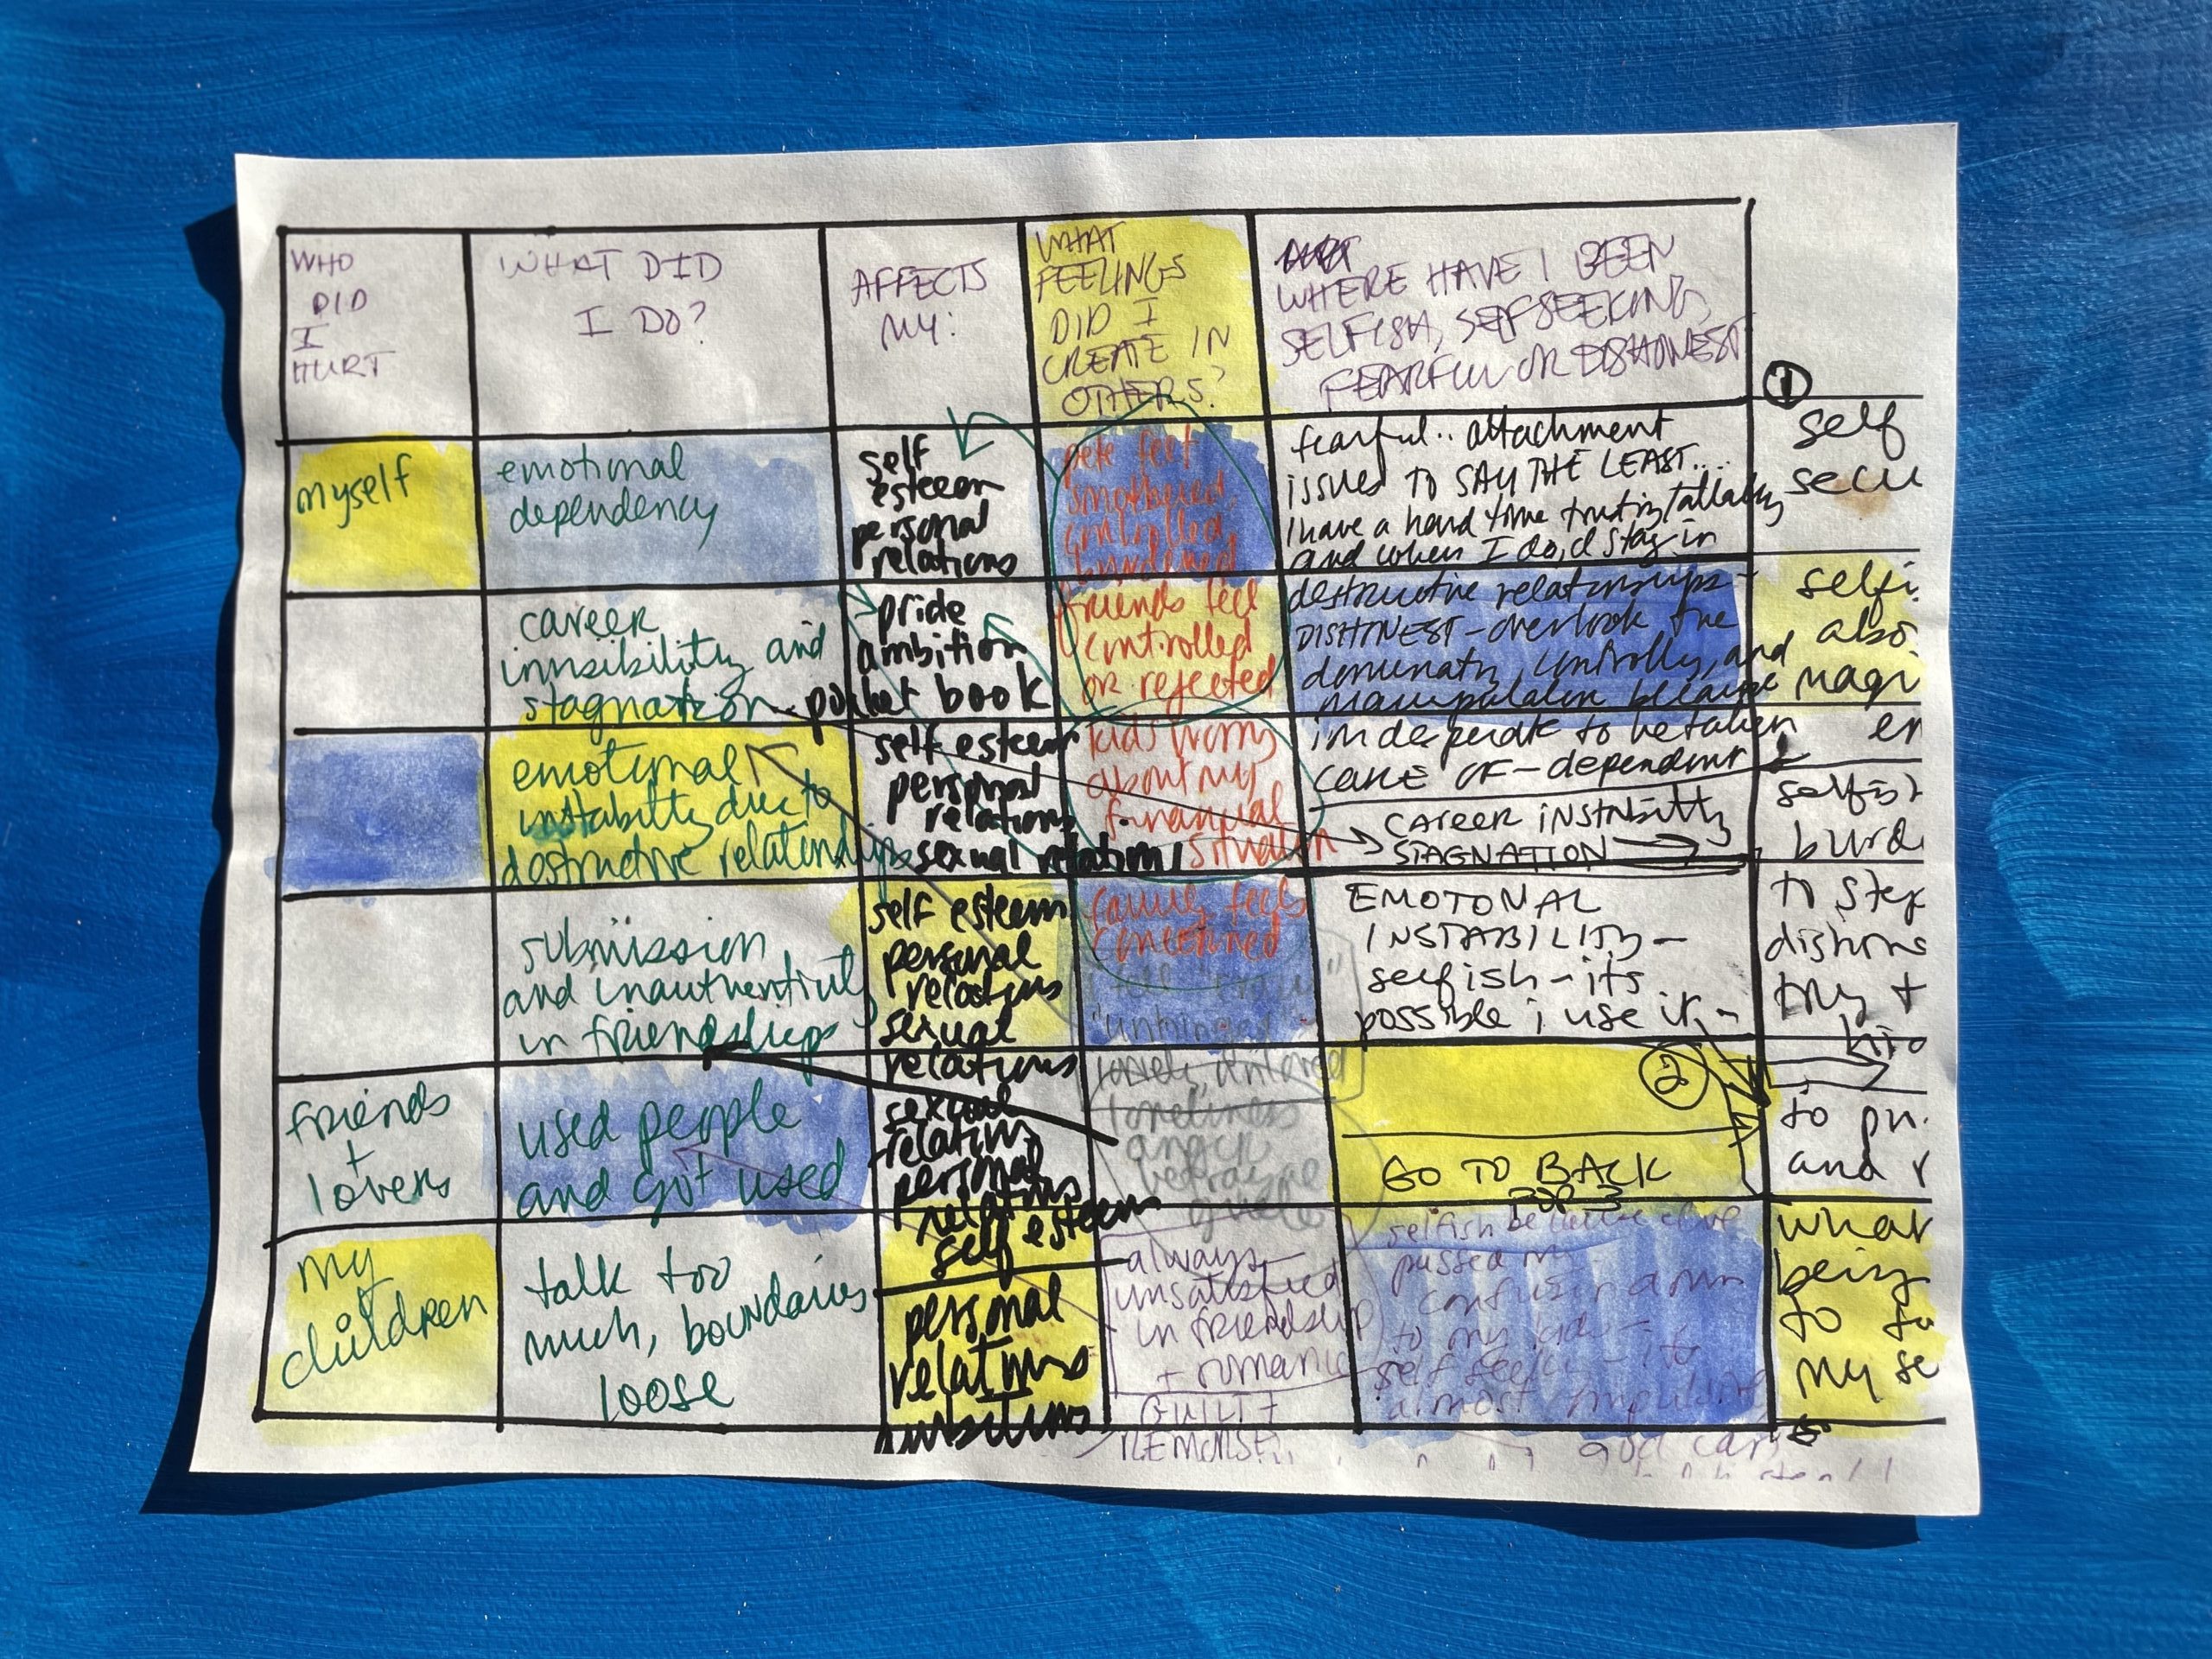 WHO
DID
I
HURT
WHAT DID
I DO?
AFFECTS
MY:
WHAT
FEELINGS
DID I
CREATE IN
OTHERS?
WHERE HAVE I BEEN
SELFISH, SELFSEEKING,
FEARFUL OR DISHONEST
myself
emotional
dependency
self
esteem
personal
relations
pete feel
smothered
controlled
burdened
fearful.. attachment
issues to SAY THE LEAST....
I have a hard time trusting
and when I do, I stay in
①
self
secu
career
invisibility and
stagnation
pride
ambition
pocket book
friends feel
controlled
or rejected
destructive relationships-
DISHONEST - overlook the
and
because
selfi
also
magn
emotional
instability due to
destructive relationships
self esteem
personal
relations
sexual relations
kids worry
about my
financial
situation
im desperate to be taken
CARE OF - dependent
CAREER INSTABILITY
STAGNATION
er
selfish
burd
submission
and inauthenticity
in friendships
self esteem
personal
relations
sexual
relations
family feels
concerned
"unhinged"
EMOTONAL
INSTABILITY -
selfish - its
possible i use it -
to step
dishons
try +
friends
+
lovers
used people
and got used
sexual
relations
personal
relations
self esteem
loneliness
anger
betrayal
②
GO TO BACK
FOR 3
to pu
and
my
children
talk too
much, boundaries
loose
personal
relations
ambitions
always
unsatisfied
in friendship
+ romance
GUILT +
REMORSE
selfish because
passed
confusion down
to my kids -
self seeking - its
almost
what
being
to fu
my se